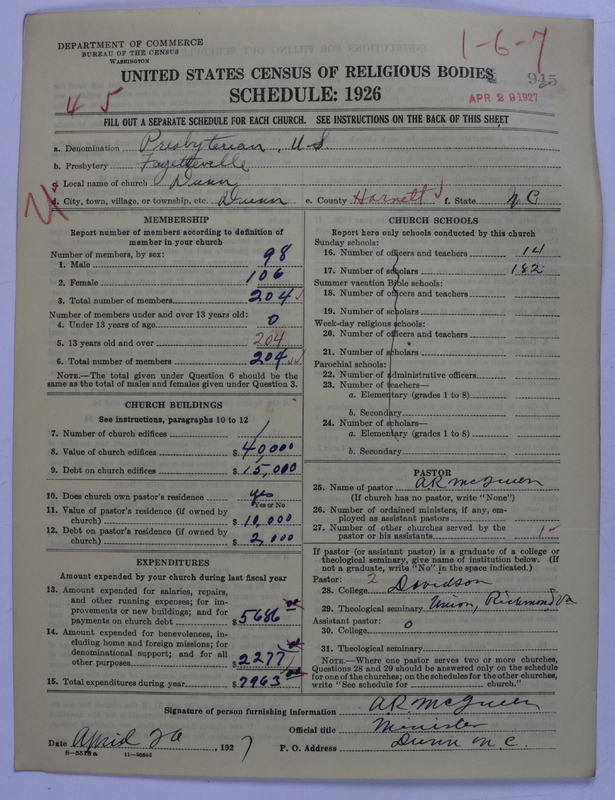 DEPARTMENT OF COMMERCE
BUREAU OF THE CENSUS
WASHINGTON
1-6-7
945
UNITED STATES CENSUS OF RELIGIOUS BODIES
SCHEDULE: 1926
APR 29 1927
4 5
FILL OUT A SEPARATE SCHEDULE FOR EACH CHURCH. SEE INSTRUCTIONS ON THE BACK OF THIS SHEET
a. Denomination Presbyterian, U.S.
b. Presbytery Fayetteville
c. Local name of church Dunn
d. City, town, village, or township, etc. Dunn e. County Harnett f. State N C
MEMBERSHIP
Report number of members according to definition of
member in your church
Number of members, by sex:
1. Male 98
2. Female 106
3. Total number of members 204
Number of members under and over 13 years old:
4. Under 13 years of age 0
5. 13 years old and over 204
6. Total number of members 204
NOTE.—The total given under Question 6 should be
the same as the total of males and females given under Question 3.
CHURCH BUILDINGS
See instructions, paragraphs 10 to 12
7. Number of church edifices 1
8. Value of church edifices $ 40,000
9. Debt on church edifices $ 15,000
10. Does church own pastor's residence yes
Yes or No
11. Value of pastor's residence (if owned by
church) $ 10,000
12. Debt on pastor's residence (if owned by
church) $ 2,000
EXPENDITURES
Amount expended by your church during last fiscal year
13. Amount expended for salaries, repairs,
and other running expenses; for im-
provements or new buildings; and for
payments on church debt $ 5686 00
14. Amount expended for benevolences, in-
cluding home and foreign missions; for
denominational support; and for all
other purposes $ 2277
15. Total expenditures during year $ 7963 00
CHURCH SCHOOLS
Report here only schools conducted by this church
Sunday schools:
16. Number of officers and teachers 14
17. Number of scholars 182
Summer vacation Bible schools:
18. Number of officers and teachers
19. Number of scholars
Week-day religious schools:
20. Number of officers and teachers
21. Number of scholars
Parochial schools:
22. Number of administrative officers
23. Number of teachers—
a. Elementary (grades 1 to 8)
b. Secondary
24. Number of scholars—
a. Elementary (grades 1 to 8)
b. Secondary
PASTOR
25. Name of pastor A R McQueen
(If church has no pastor, write "None")
26. Number of ordained ministers, if any, em-
ployed as assistant pastors
27. Number of other churches served by the
pastor or his assistants 1
If pastor (or assistant pastor) is a graduate of a college or
theological seminary, give name of institution below. (If
not a graduate, write "No" in the space indicated.)
Pastor: 2
28. College Davidson
29. Theological seminary Union, Richmond Va
Assistant pastor: 0
30. College
31. Theological seminary
NOTE.—Where one pastor serves two or more churches,
Questions 28 and 29 should be answered only on the schedule
for one of the churches; on the schedules for the other churches,
write "See schedule for church."
Signature of person furnishing information A R McQueen
Official title Minister
Date April 26, 1927 P. O. Address Dunn N. C.